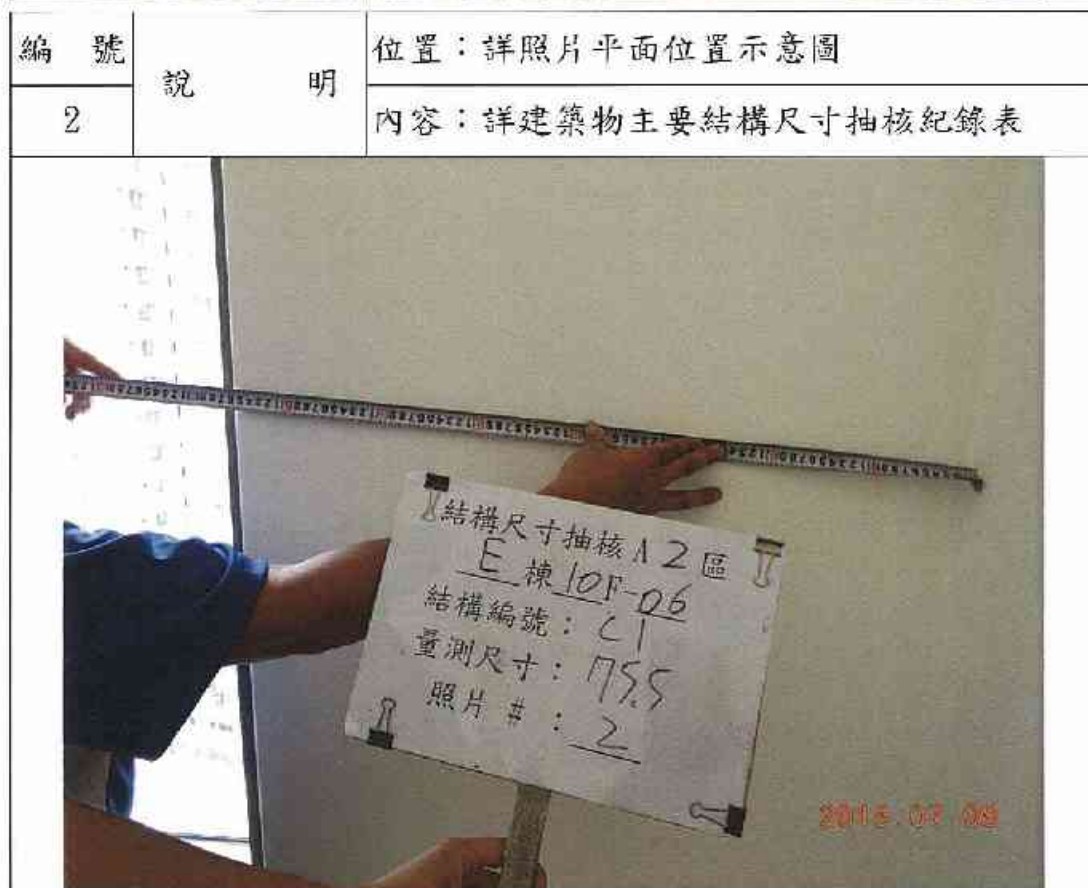 編 號
說 明
位置：詳照片平面位置示意圖
2
內容：詳建築物主要結構尺寸抽核紀錄表
結構尺寸抽核 A 2 區
E 棟 10F-06
結構編號：C1
量測尺寸：75.5
照片 #：2